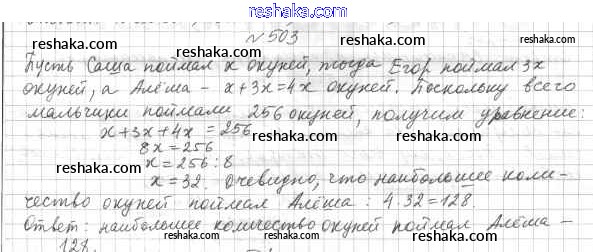 reshaka.com
№503
reshaka.com
reshaka.com
Пусть Саша поймал x окуней, тогда Егор поймал 3x
окуней, а Алёша - x+3x=4x окуней. Поскольку всего
reshaka.com
reshaka.com
мальчики поймали 256 окуней, получим уравнение:
x+3x+4x=256
reshaka.com
reshaka.com
8x=256
x=256:8
reshaka.com
reshaka.com
x=32. Очевидно, что наибольшее коли-
чество окуней поймал Алёша: 4·32=128.
reshaka.com
reshaka.com
Ответ: наибольшее количество окуней поймал Алёша -
128.
reshaka.com
reshaka.com